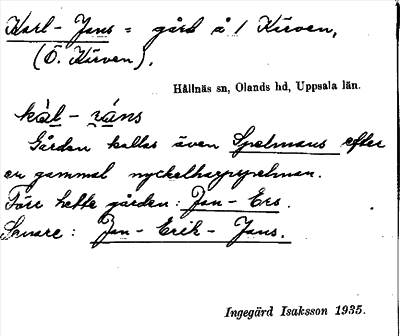 Karl-Jans = gård å / Kärven,
(Ö. Kärven).
Hållnäs sn, Olands hd, Uppsala län.
Gården kallas även Spelmans efter
en gammal nyckelharpspelman.
Förr hette gården: Jan-Ers.
Senare: Jan-Erik-Jans.
Ingegärd Isaksson 1935.